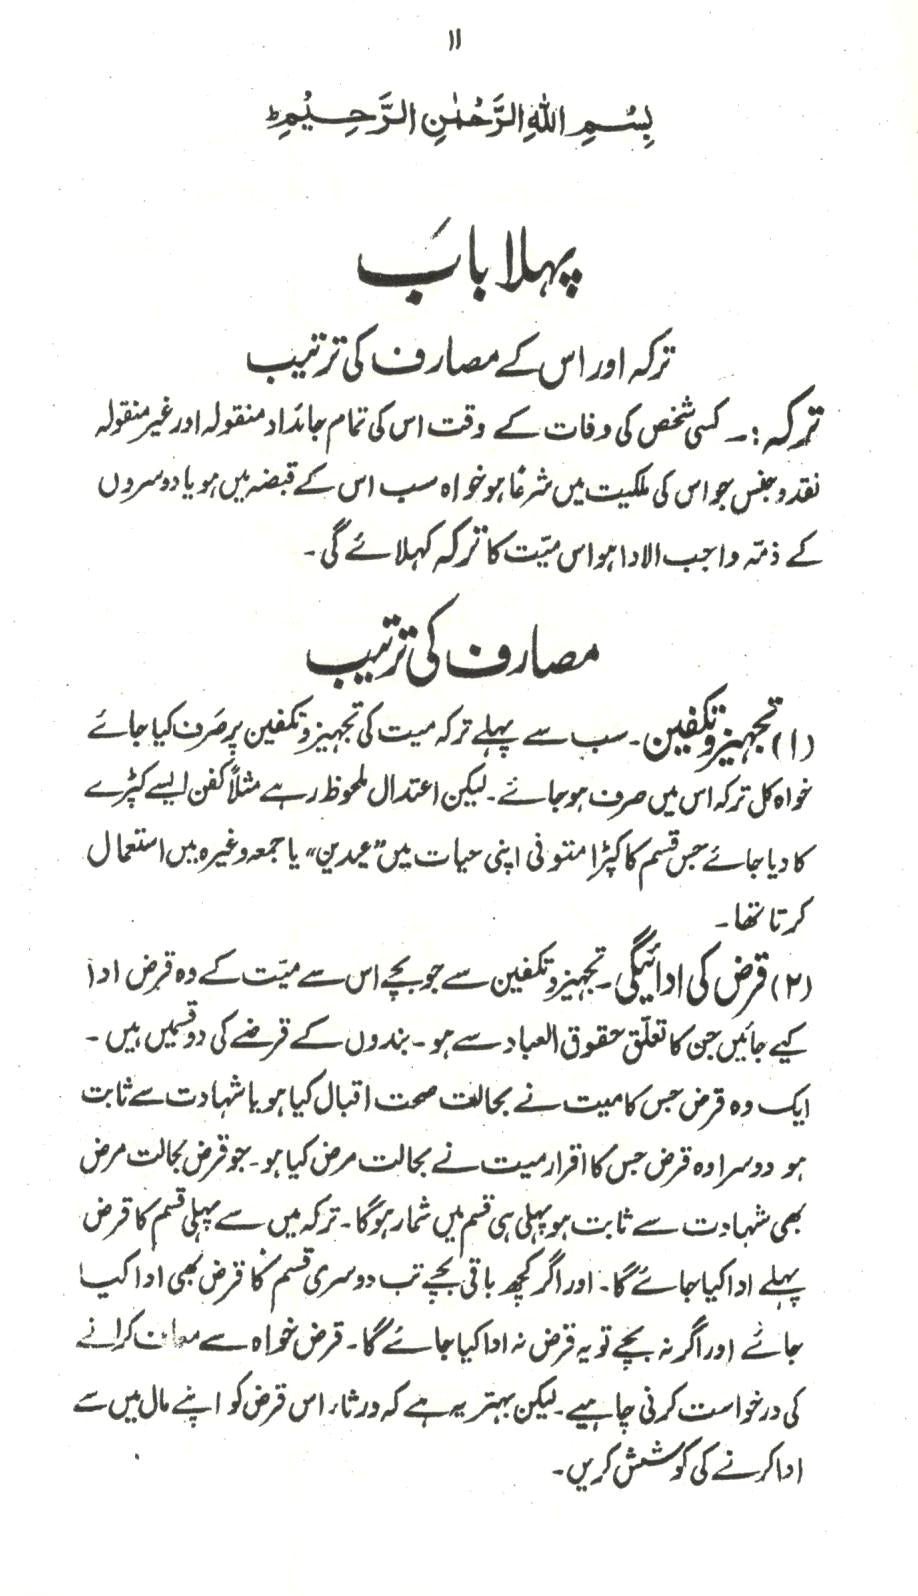 ۱۱
بِسْمِ اللهِ الرَّحْمٰنِ الرَّحِيْمِؕ
پہلا باب
ترکہ اور اس کے مصارف کی ترتیب
ترکہ :۔ کسی شخص کی وفات کے وقت اس کی تمام جائداد منقولہ اور غیر منقولہ
نقد و جنس جو اس کی ملکیت میں شرعًا ہو خواہ سب اس کے قبضہ میں ہو یا دوسروں
کے ذمّہ واجب الادا ہو اس میّت کا ترکہ کہلائے گی۔
مصارف کی ترتیب
(۱) تجہیز و تکفین۔ سب سے پہلے ترکہ میت کی تجہیز و تکفین پر صَرف کیا جائے
خواہ کل ترکہ اس میں صرف ہو جائے۔ لیکن اعتدال ملحوظ رہے مثلاً کفن ایسے کپڑے
کا دیا جائے جس قسم کا کپڑا متوفی اپنی حیات میں ”عیدین“ یا جمعہ وغیرہ میں استعمال
کرتا تھا۔
(۲) قرض کی ادائیگی۔ تجہیز و تکفین سے جو بچے اس سے میّت کے وہ قرض ادا
کیے جائیں جن کا تعلّق حقوق العباد سے ہو۔ بندوں کے قرضے کی دو قسمیں ہیں۔
ایک وہ قرض جس کا میت نے بحالت صحت اقبال کیا ہو یا شہادت سے ثابت
ہو دوسرا وہ قرض جس کا اقرار میت نے بحالت مرض کیا ہو۔ جو قرض بحالت مرض
بھی شہادت سے ثابت ہو پہلی ہی قسم میں شمار ہوگا۔ ترکہ میں سے پہلی قسم کا قرض
پہلے ادا کیا جائے گا۔ اور اگر کچھ باقی بچے تب دوسری قسم کا قرض بھی ادا کیا
جائے اور اگر نہ بچے تو یہ قرض نہ ادا کیا جائے گا۔ قرض خواہ سے معاف کرانے
کی درخواست کرنی چاہیے۔ لیکن بہتر یہ ہے کہ ورثاء اس قرض کو اپنے مال میں سے
ادا کرنے کی کوشش کریں۔